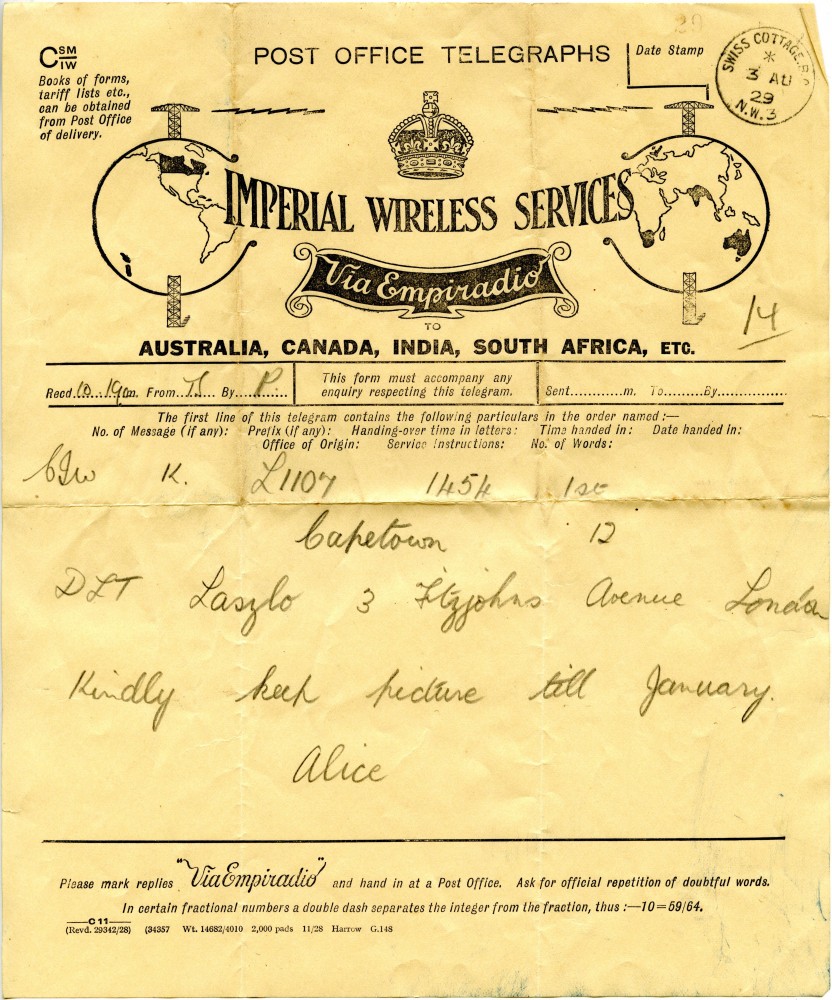 29
POST OFFICE TELEGRAPHS
Date Stamp
SWISS COTTAGE B.O
*
3 AU
29
N.W.3
C SM
IW
Books of forms,
tariff lists etc.,
can be obtained
from Post Office
of delivery.
IMPERIAL WIRELESS SERVICES
Via Empiradio
TO
14
AUSTRALIA, CANADA, INDIA, SOUTH AFRICA, ETC.
Recd. 10.19 am. From TS By P.
This form must accompany any
enquiry respecting this telegram.
Sent............m. To.........By...............
The first line of this telegram contains the following particulars in the order named :—
No. of Message (if any): Prefix (if any): Handing-over time in letters: Time handed in: Date handed in:
Office of Origin: Service Instructions: No. of Words:
K. L1107 1454 1st
Capetown 12
DLT Laszlo 3 Fitzjohns Avenue London
Kindly keep picture till January.
Alice
Please mark replies "Via Empiradio" and hand in at a Post Office. Ask for official repetition of doubtful words.
In certain fractional numbers a double dash separates the integer from the fraction, thus :—10=59/64.
C 11
(Revd. 29342/28) (34357 Wt. 14682/4010 2,000 pads 11/28 Harrow G.148